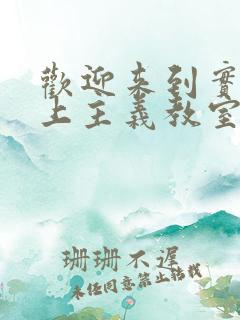 歡迎來到實
上主義教室
珊珊不遲
未任同意禁止轉載